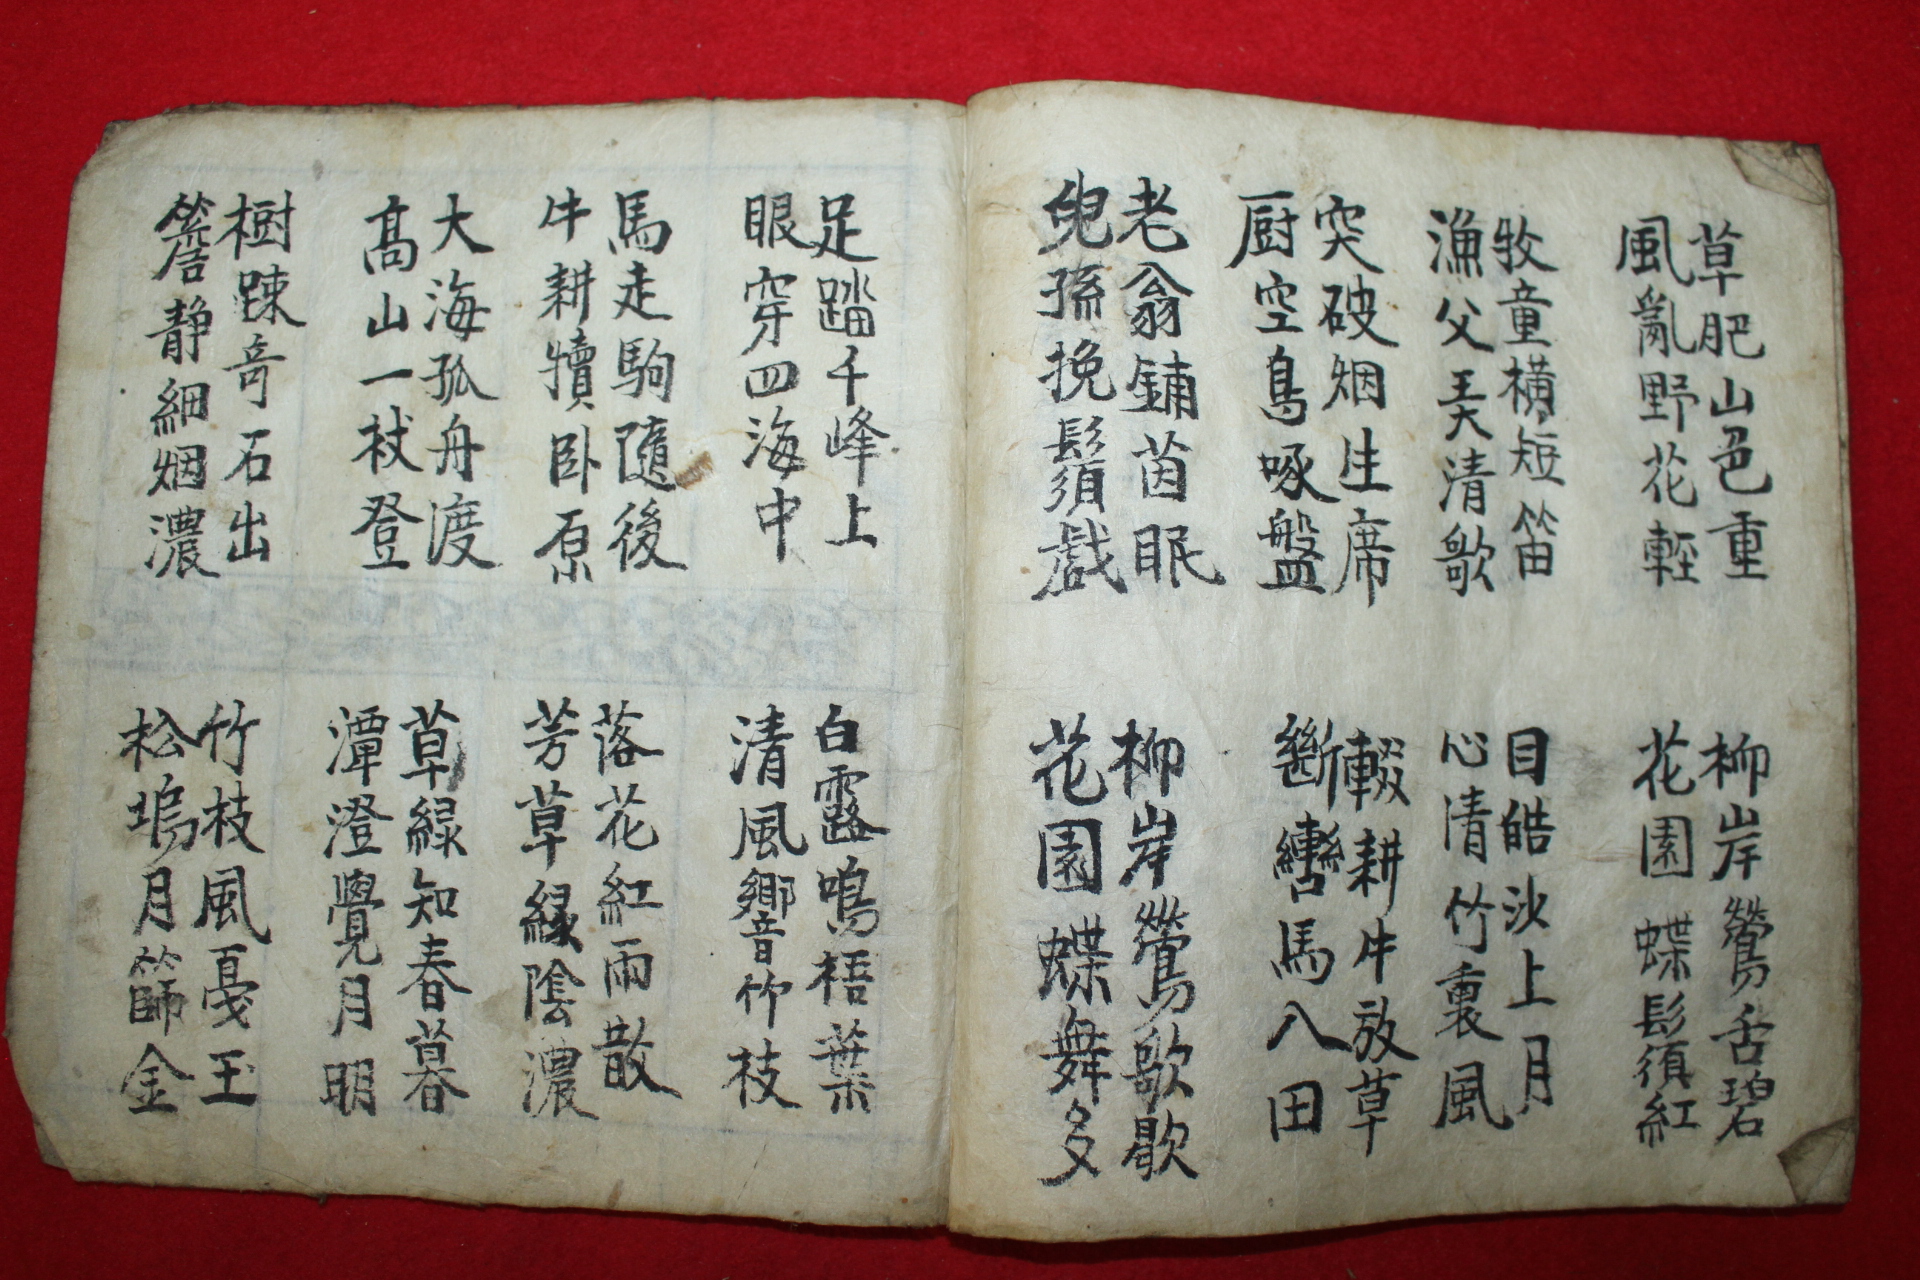 草肥山色重
風亂野花輕
牧童橫短笛
漁父美清歌
突破烟生席
厨空鳥啄盤
老翁鋪茵眠
兒孫挽鬚戲
柳岸鶯舌碧
花園蝶鬚紅
目皓沙上月
心清竹裏風
輟耕牛放草
斷轡馬八田
柳岸鶯歌歇
花園蝶舞多
足踏千峰上
眼穿四海中
馬走駒隨後
牛耕犢卧原
大海孤舟渡
髙山一杖登
樹踈奇石出
簷静細烟濃
白露鳴梧葉
清風響竹枝
落花紅雨散
芳草緑陰濃
草緑知春暮
潭澄覺月明
竹枝風戞玉
松塢月篩金